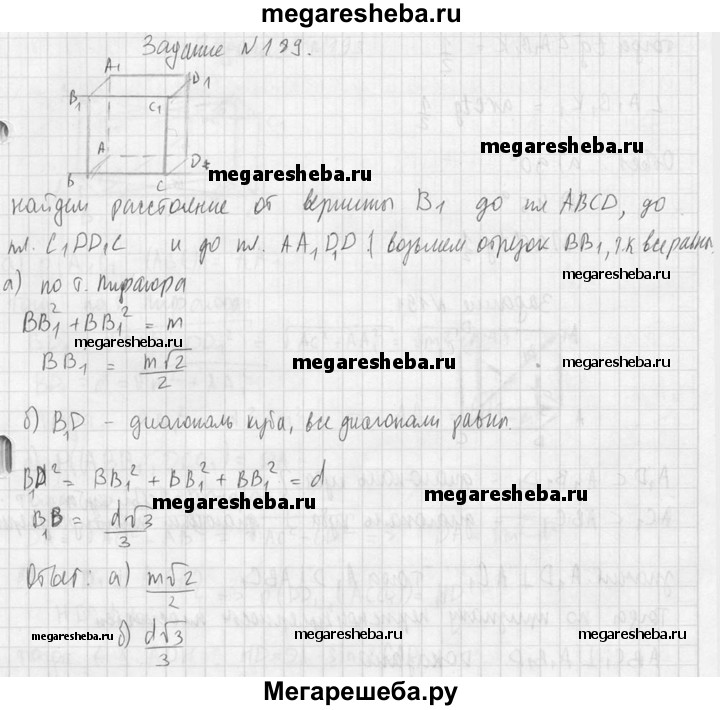 megaresheba.ru
Задание №189.
A1
D1
B1
C1
megaresheba.ru
A
D
megaresheba.ru
B
C
найдем расстояние от вершины B1 до пл ABCD, до
пл. C1DD1C и до пл. AA1D1D | возьмем отрезок BB1, т.к все равн.
megaresheba.ru
а) по т. Пифагора
BB1² + BB1² = m
megaresheba.ru
BB1 = m√2/2
megaresheba.ru
megaresheba.ru
б) B1D – диагональ куба, все диагонали равны.
B1D² = BB1² + BB1² + BB1² = d
megaresheba.ru
megaresheba.ru
B1B = d√3/3
Ответ: а) m√2/2
megaresheba.ru
megaresheba.ru
б) d√3/3
megaresheba.ru
megaresheba.ru
Мегарешеба.ру